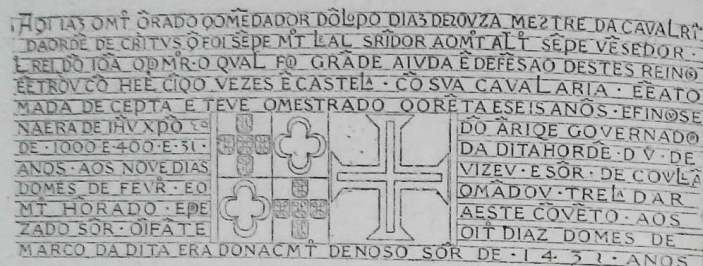 AQI IAZ O MT ORADO COMEDADOR DO LOPO DIAZ DE ZOVZA MESTRE DA CAVALRI
DAORDE DE CRITVS Q FOI SEPE MT LEAL SRIDOR AO MT ALT SEPE VESEDOR ·
ELREI DO IOA O PMR · O QVAL FO GRADE AIVDA E DEFESAO DESTES REINO
E ETROV CO HEE CIQO VEZES E CASTELA · CO SVA CAVALARIA · E E A TO
MADA DE CEPTA E TEVE O MESTRADO QORETA E SEIS ANOS · E FINOSE
NA ERA DE IHV XPO
DE · 1000 · E · 400 · E · 31 ·
ANOS · AOS NOVE DIAS
DO MES DE FEVR · E O
MT HORADO · E PE
ZADO SOR · O IFATE
DO ARIQE GOVERNADO
DA DITA HORDE · D V · DE
VIZEV · E SOR · DE COVLA
O MADOV · TRELADAR
A ESTE COVETO · AOS
OIT DIAZ DO MES DE
MARCO DA DITA ERA DO NACMT DE NOSO SOR DE · 1 · 4 · 3 1 · ANOS